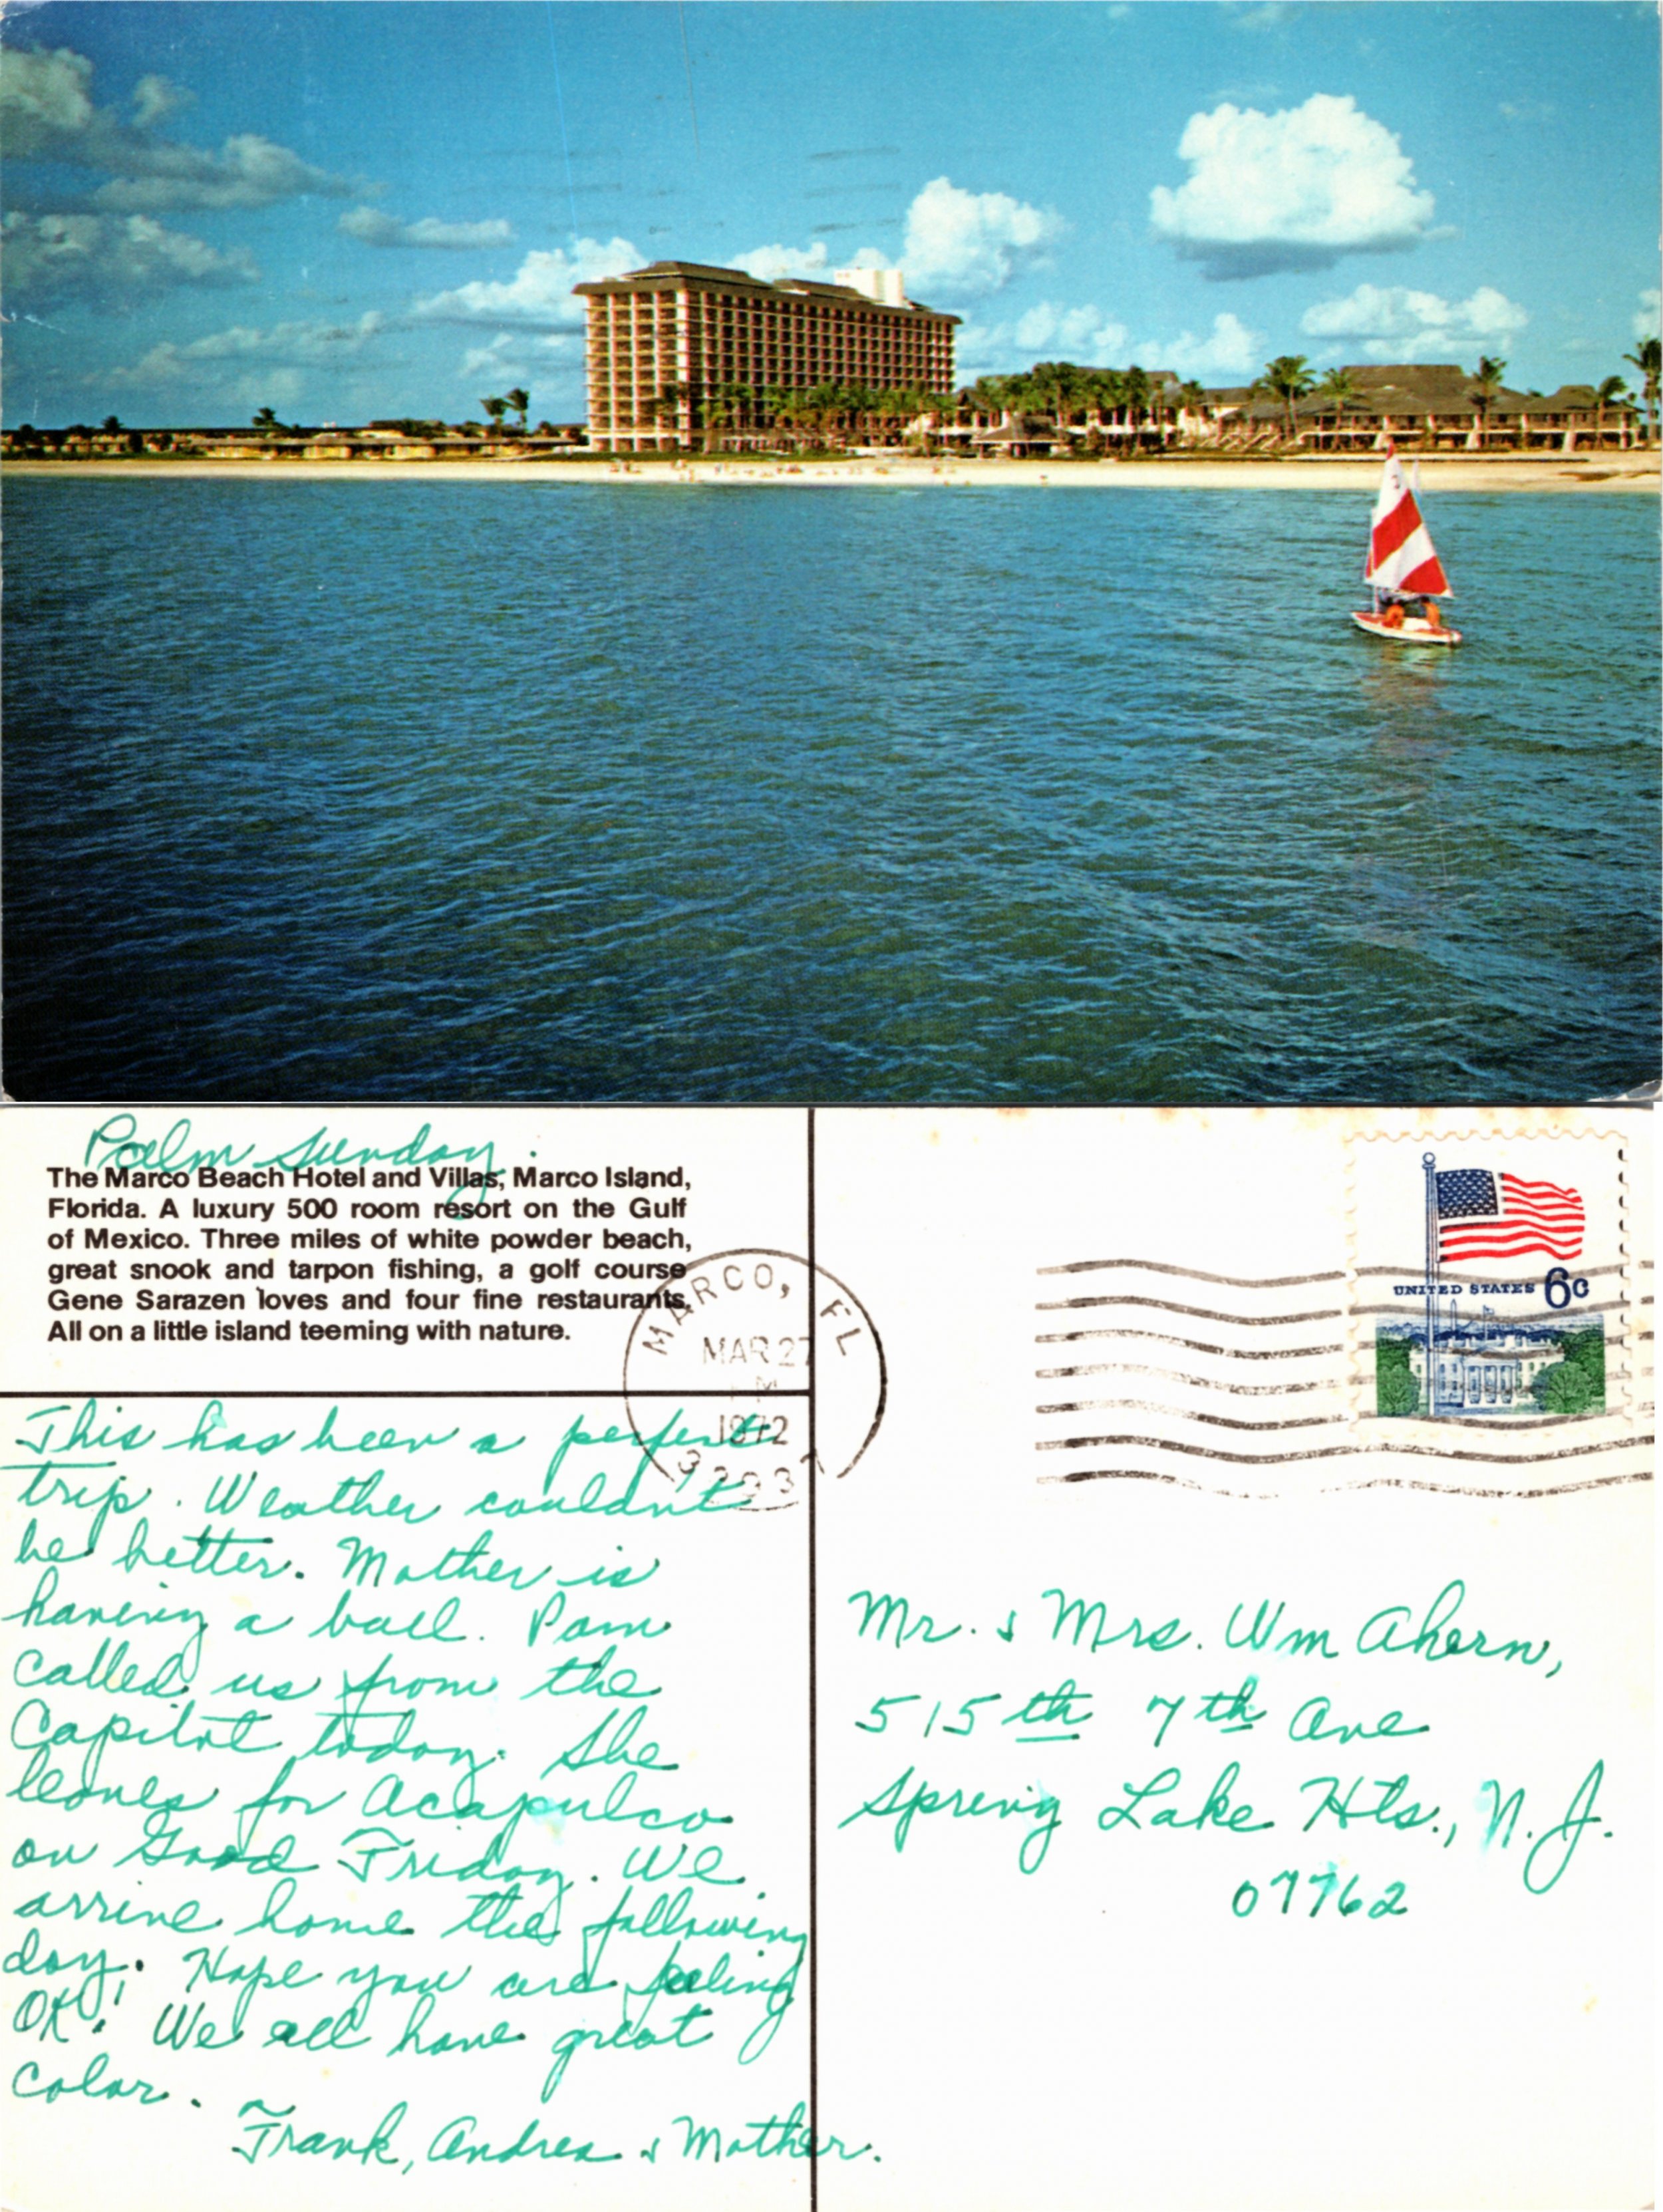 Palm Sunday.
The Marco Beach Hotel and Villas, Marco Island,
Florida. A luxury 500 room resort on the Gulf
of Mexico. Three miles of white powder beach,
great snook and tarpon fishing, a golf course
Gene Sarazen loves and four fine restaurants.
All on a little island teeming with nature.
MARCO, FL
MAR 27
PM
1972
33937
UNITED STATES 6c
This has been a perfect
trip. Weather couldn't
be better. Mother is
having a ball. Pam
called us from the
Capitol today. She
leaves for Acapulco
on Good Friday. We
arrive home the following
day. Hope you are feeling
OK! We all have great
color.
Frank, Andrea & Mother.
Mr. & Mrs. Wm Ahern,
515th 7th Ave
Spring Lake Hts., N.J.
07762